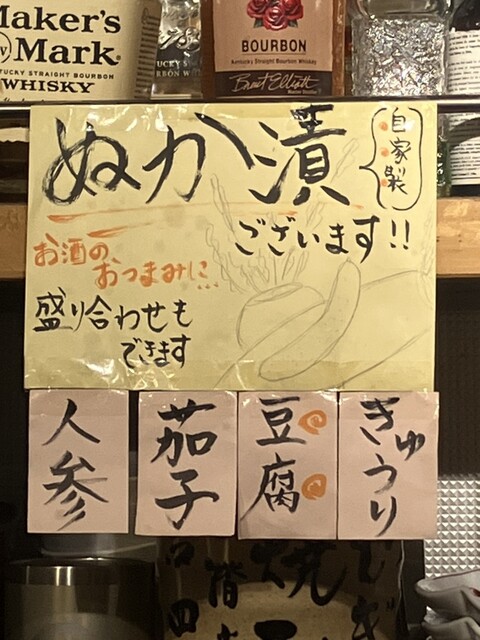 Maker's
Mark®
KENTUCKY STRAIGHT BOURBON
WHISKY
BOURBON
Kentucky Straight Bourbon Whiskey
Brent Elliott
ぬか漬
自家製
ございます!!
お酒の、
おつまみに…
盛り合わせも
できます
人参
茄子
豆腐
きゅうり